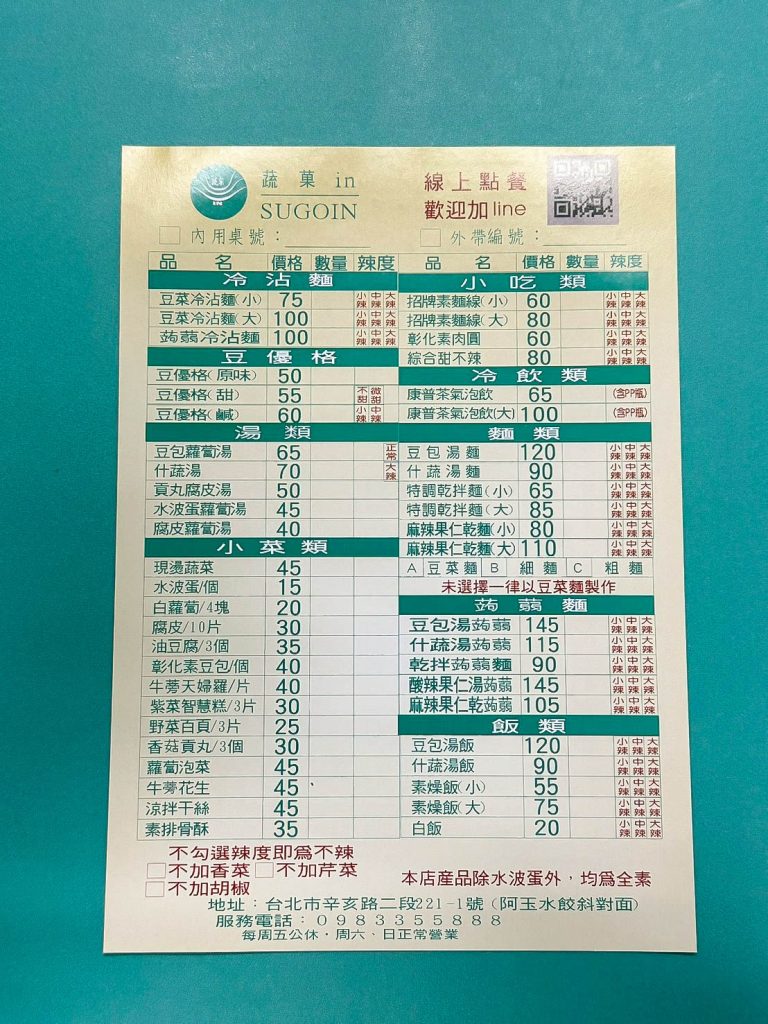 蔬菓in
SUGOIN
線上點餐
歡迎加line
內用桌號：
外帶編號：
品名 價格 數量 辣度
冷沾麵
豆菜冷沾麵(小) 75 小辣 中辣 大辣
豆菜冷沾麵(大) 100 小辣 中辣 大辣
蒟蒻冷沾麵 100 小辣 中辣 大辣
豆優格
豆優格(原味) 50
豆優格(甜) 55 不甜 微甜
豆優格(鹹) 60 小辣 中辣
湯類
豆包蘿蔔湯 65 正常
什蔬湯 70 大辣
貢丸腐皮湯 50
水波蛋蘿蔔湯 45
腐皮蘿蔔湯 40
小菜類
現燙蔬菜 45
水波蛋/個 15
白蘿蔔/4塊 20
腐皮/10片 30
油豆腐/3個 35
彰化素豆包/個 40
牛蒡天婦羅/片 40
紫菜智慧糕/3片 30
野菜百頁/3片 25
香菇貢丸/3個 30
蘿蔔泡菜 45
牛蒡花生 45
涼拌干絲 45
素排骨酥 35
品名 價格 數量 辣度
小吃類
招牌素麵線(小) 60 小辣 中辣 大辣
招牌素麵線(大) 80 小辣 中辣 大辣
彰化素肉圓 60 小辣 中辣 大辣
綜合甜不辣 80 小辣 中辣 大辣
冷飲類
康普茶氣泡飲 65 (含PP瓶)
康普茶氣泡飲(大) 100 (含PP瓶)
麵類
豆包湯麵 120 小辣 中辣 大辣
什蔬湯麵 90 小辣 中辣 大辣
特調乾拌麵(小) 65 小辣 中辣 大辣
特調乾拌麵(大) 85 小辣 中辣 大辣
麻辣果仁乾麵(小) 80 小辣 中辣 大辣
麻辣果仁乾麵(大) 110 小辣 中辣 大辣
A 豆菜麵 B 細麵 C 粗麵
未選擇一律以豆菜麵製作
蒟蒻麵
豆包湯蒟蒻 145 小辣 中辣 大辣
什蔬湯蒟蒻 115 小辣 中辣 大辣
乾拌蒟蒻麵 90 小辣 中辣 大辣
酸辣果仁湯蒟蒻 145 小辣 中辣 大辣
麻辣果仁乾蒟蒻 105 小辣 中辣 大辣
飯類
豆包湯飯 120 小辣 中辣 大辣
什蔬湯飯 90 小辣 中辣 大辣
素燥飯(小) 55 小辣 中辣 大辣
素燥飯(大) 75 小辣 中辣 大辣
白飯 20 小辣 中辣 大辣
不勾選辣度即為不辣
不加香菜 不加芹菜
不加胡椒
本店產品除水波蛋外，均為全素
地址：台北市辛亥路二段221-1號(阿玉水餃斜對面)
服務電話：0983355888
每周五公休‧周六、日正常營業